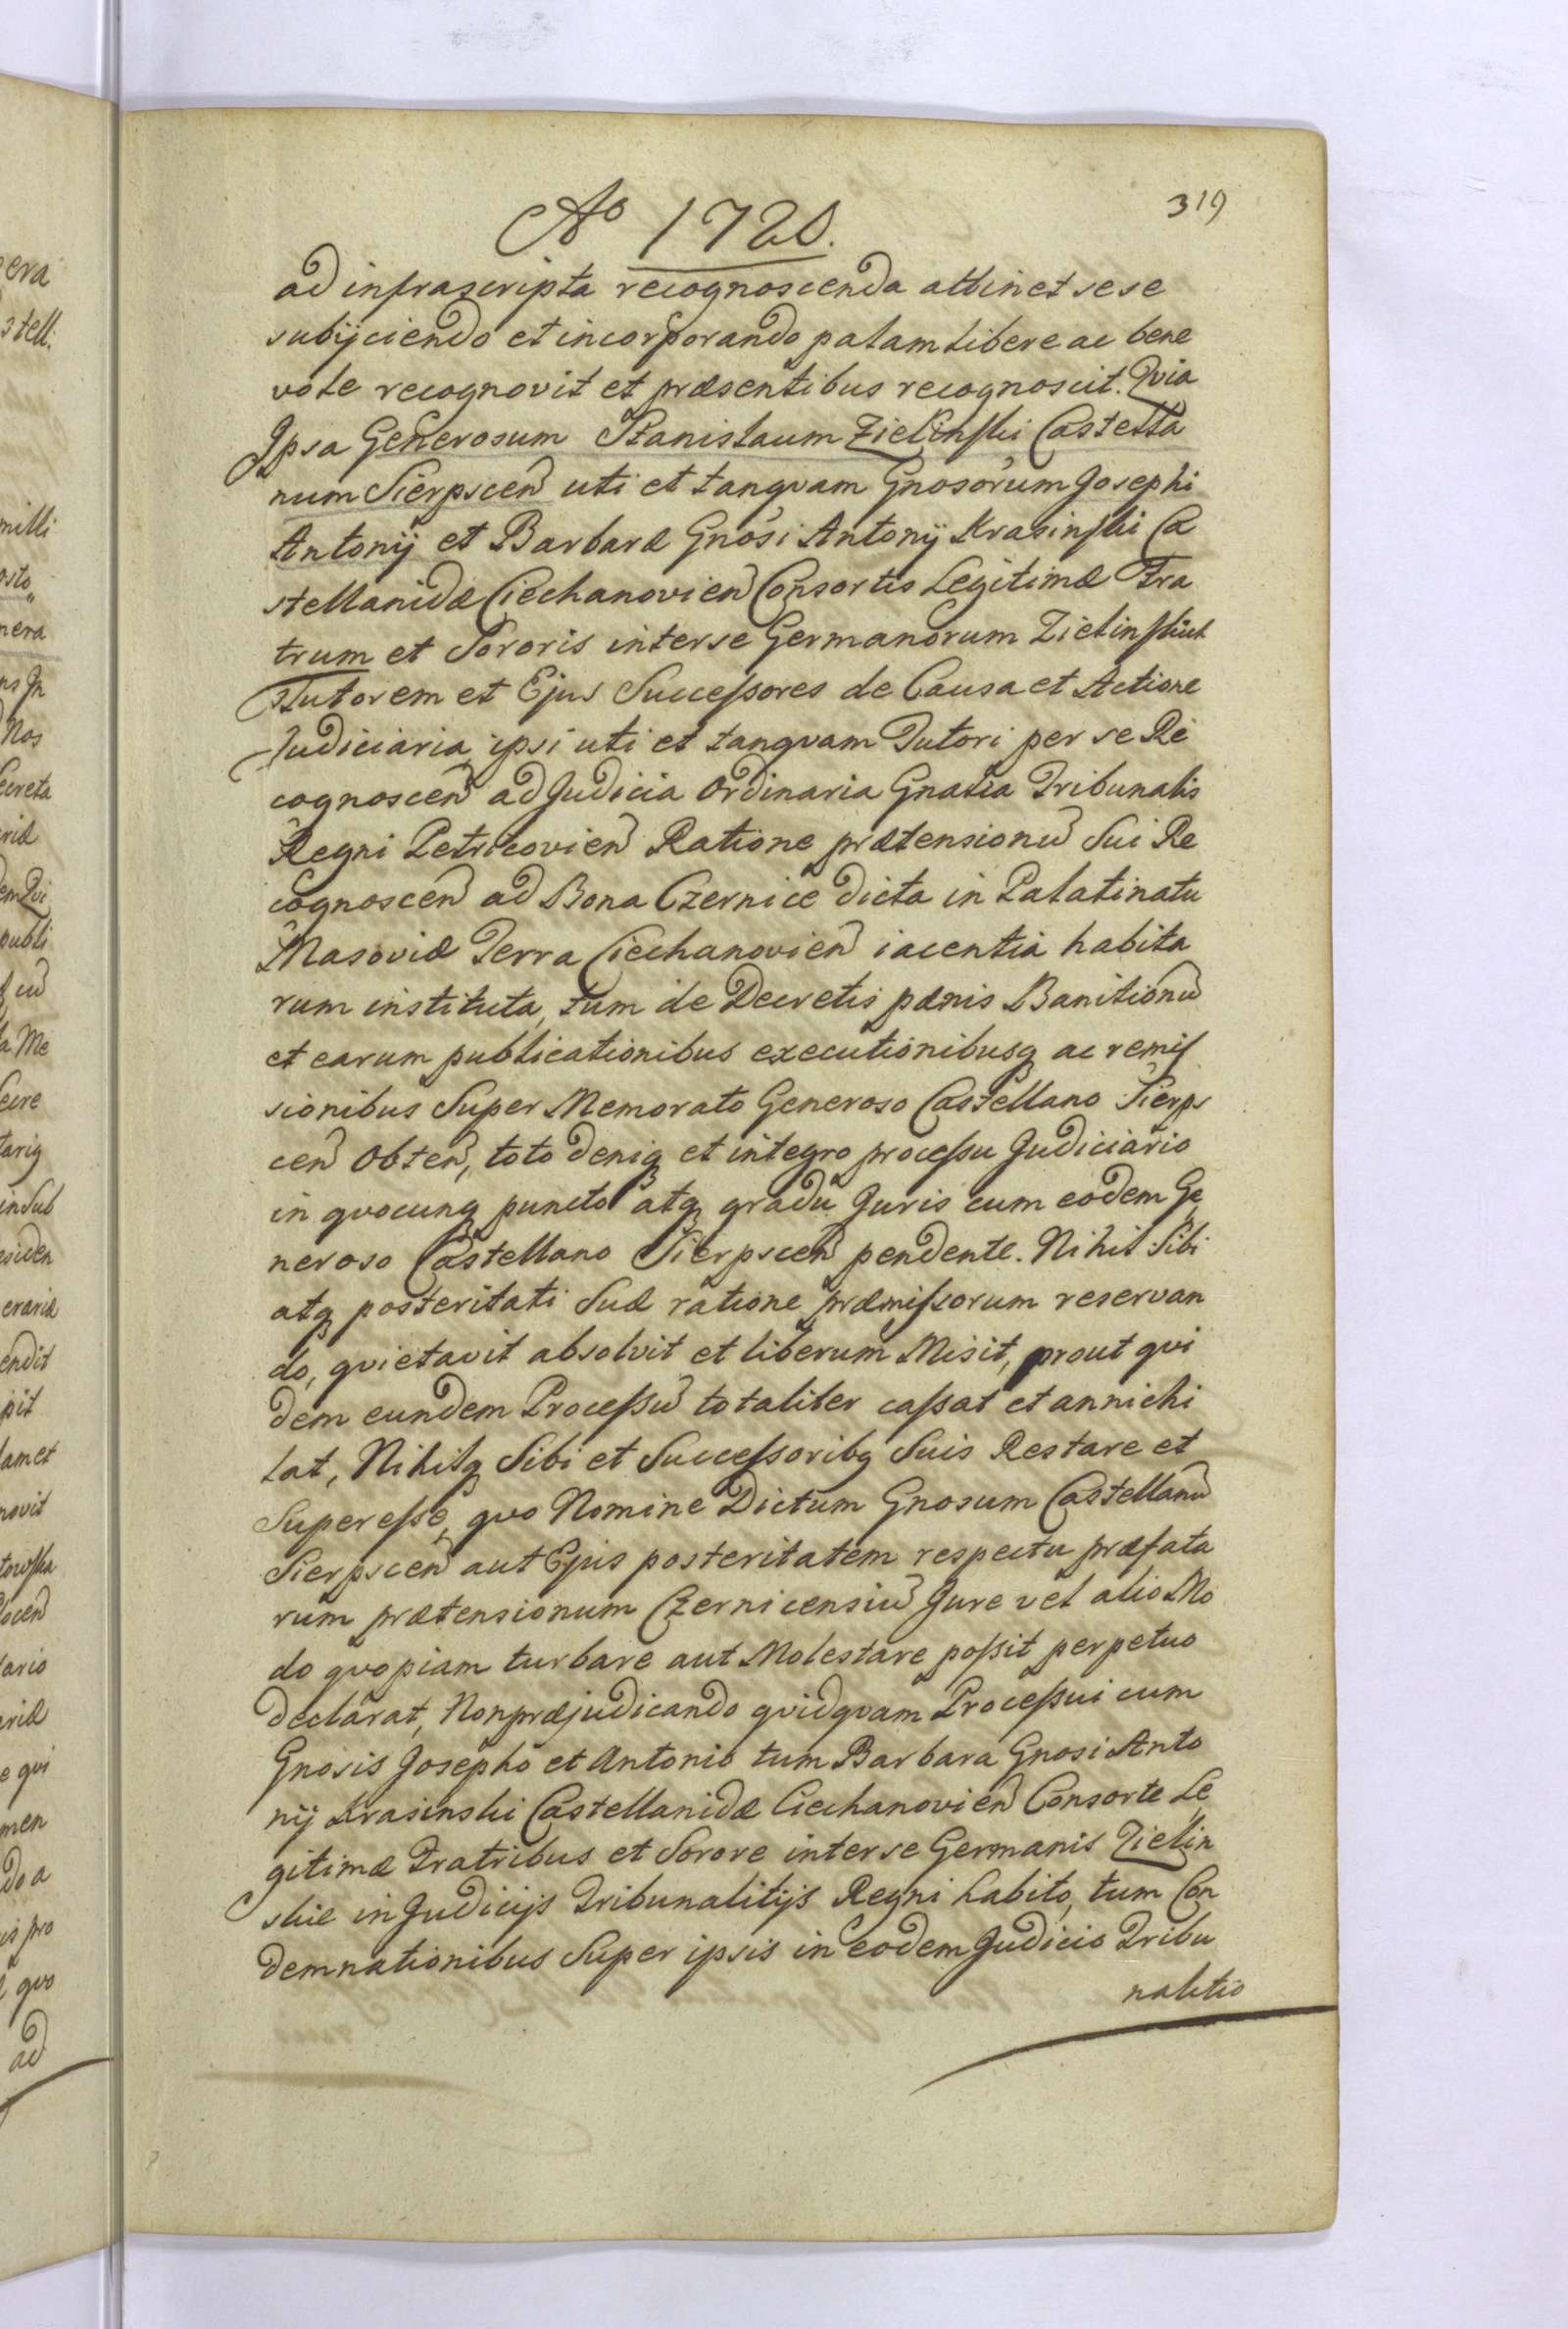 319
Ao 1720.
ad infrascripta recognoscenda attinet sese
subijciendo et incorporando palam libere ac bene
vole recognovit et præsentibus recognoscit. Qvia
Ipsa Generosum Stanislaum Zielinski Castella
num Sierpscen uti et tanqvam Gnosorum Josephi
Antonij et Barbaræ Gnosi Antonij Krasinski Ca
stellanidæ Ciechanovien Consortis Legitimæ Fra
trum et Sororis interse Germanorum Zielinskich
Tutorem et Ejus Successores de Causa et Actione
Judiciaria ipsi uti et tanqvam Tutori per se Re
cognoscen ad Judicia Ordinaria Gnalia Tribunalis
Regni Petricovien Ratione prætensionu Sui Re
cognoscen ad Bona Czernice dicta in Palatinatu
Masoviæ Terra Ciechanovien iacentia habita
rum instituta, tum de Decretis pænis Banitionu
et earum publicationibus executionibusq ac remis
sionibus Super Memorato Generoso Castellano Sierps
cen Obten, toto deniq et integro processu Judiciario
in qvocunq puncto atq gradu Juris cum eodem Ge
neroso Castellano Sierpscen pendente. Nihil Sibi
atq posteritati Suæ ratione præmissorum reservan
do, qvietavit absolvit et liberum Misit, prout qvi
dem eundem Processu totaliter cassat et annichi
lat, Nihilq Sibi et Successoribq Suis Restare et
Superesse, qvo Nomine Dictum Gnosum Castellanu
Sierpscen aut Ejus posteritatem respectu præfata
rum prætensionum Czernicensiu Jure vel alio Mo
do qvopiam turbare aut Molestare possit perpetuo
declarat, Nonpræjudicando qvidqvam Processui cum
Gnosis Josepho et Antonio tum Barbara Gnosi Anto
nij Krasinski Castellanidæ Ciechanovien Consorte Le
gitimæ Fratribus et Sorore interse Germanis Zielin
skie in Judicijs Tribunalitijs Regni habito, tum Con
demnationibus Super ipsis in eodem Judicio Tribu
nalitio